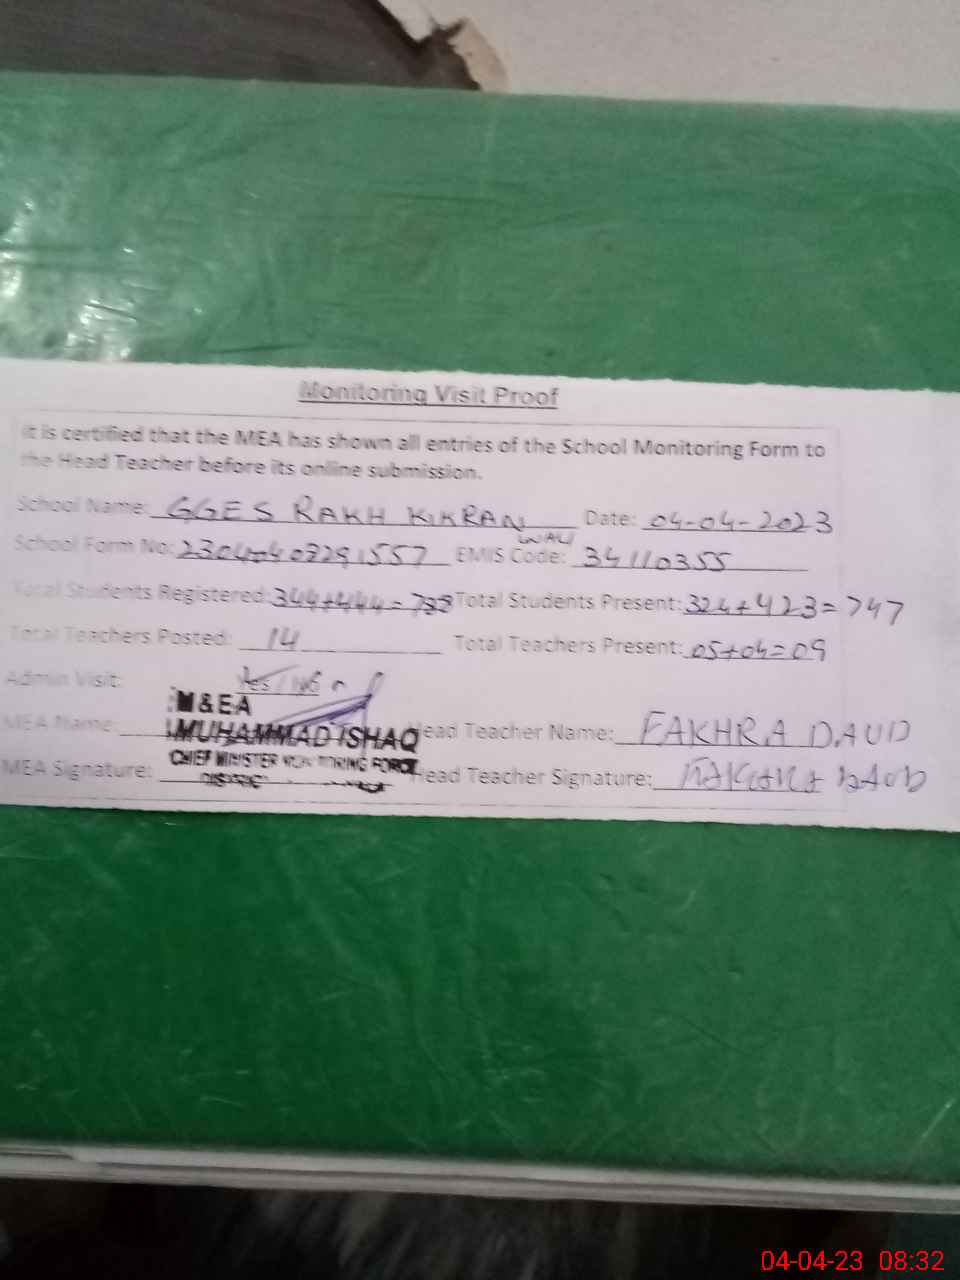 Monitoring Visit Proof
It is certified that the MEA has shown all entries of the School Monitoring Form to
the Head Teacher before its online submission.
School Name: GGES RAKH KIKRAN WALI Date: 04-04-2023
School Form No: EMIS Code: 34110355
Total Students Registered: 344+444= Total Students Present: 324+423=747
Total Teachers Posted: 14 Total Teachers Present: 05+04=09
Admin Visit: Yes / No
M&EA
MEA Name: MUHAMMAD ISHAQ Head Teacher Name: FAKHRA DAUD
CHIEF MINISTER MONITORING FORCE
MEA Signature: Head Teacher Signature: FAKHRA DAUD
04-04-23 08:32